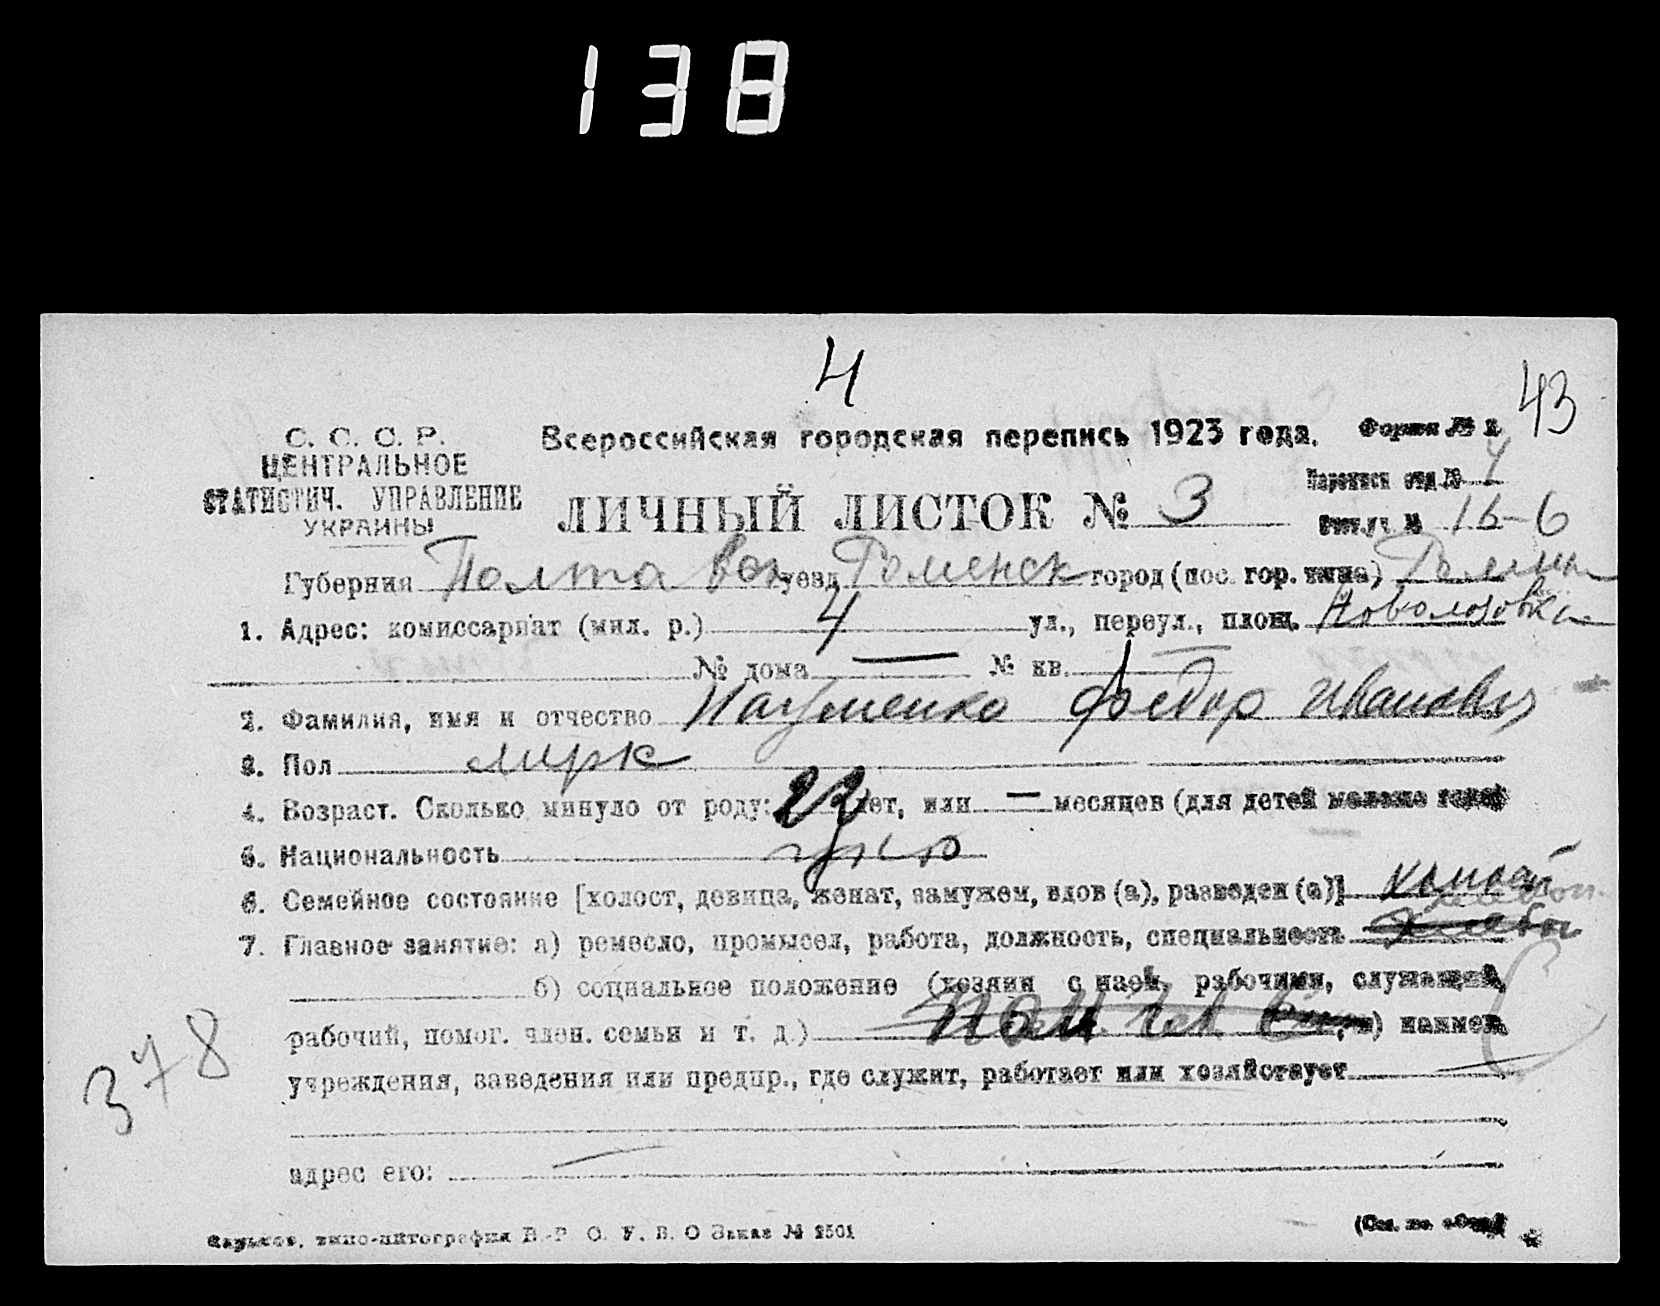 138
4
43
С. С. С. Р.
ЦЕНТРАЛЬНОЕ
СТАТИСТИЧ. УПРАВЛЕНИЕ
УКРАИНЫ
Всероссийская городская перепись 1923 года.
Форма № 1
ЛИЧНЫЙ ЛИСТОК № 3
Переписн отд. № 4
Счетн. уч. № 16-6
Губерния Полтавск уезд Роменск город (пос. гор. типа) Ромны
1. Адрес: комиссариат (мил. р.) 4 ул., переул., площ. Новолозовка
№ дома — № кв. —
2. Фамилия, имя и отчество Науменко Федор Иванович
3. Пол мужк
4. Возраст. Сколько минуло от роду: 22 лет, или — месяцев (для детей моложе года)
5. Национальность укр
6. Семейное состояние [холост, девица, женат, замужем, вдов (а), разведен (а)] холост
7. Главное занятие: а) ремесло, промысел, работа, должность, специальность
б) социальное положение (хозяин с наем. рабочими, служащий,
рабочий, помог. член. семьи и т. д.) пом. чл. с наимен.
учреждения, заведения или предпр., где служит, работает или хозяйствует
адрес его: —
378
Харьков, типо-литография В.-Р. О. У. В. О Заказ № 2501
(См. на обор.)